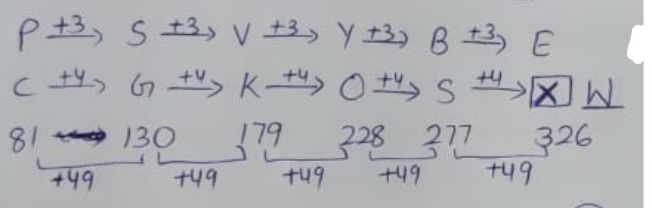 P +3 → S +3 → V +3 → Y +3 → B +3 → E
C +4 → G +4 → K +4 → O +4 → S +4 → X W
81 130 179 228 277 326
+49 +49 +49 +49 +49